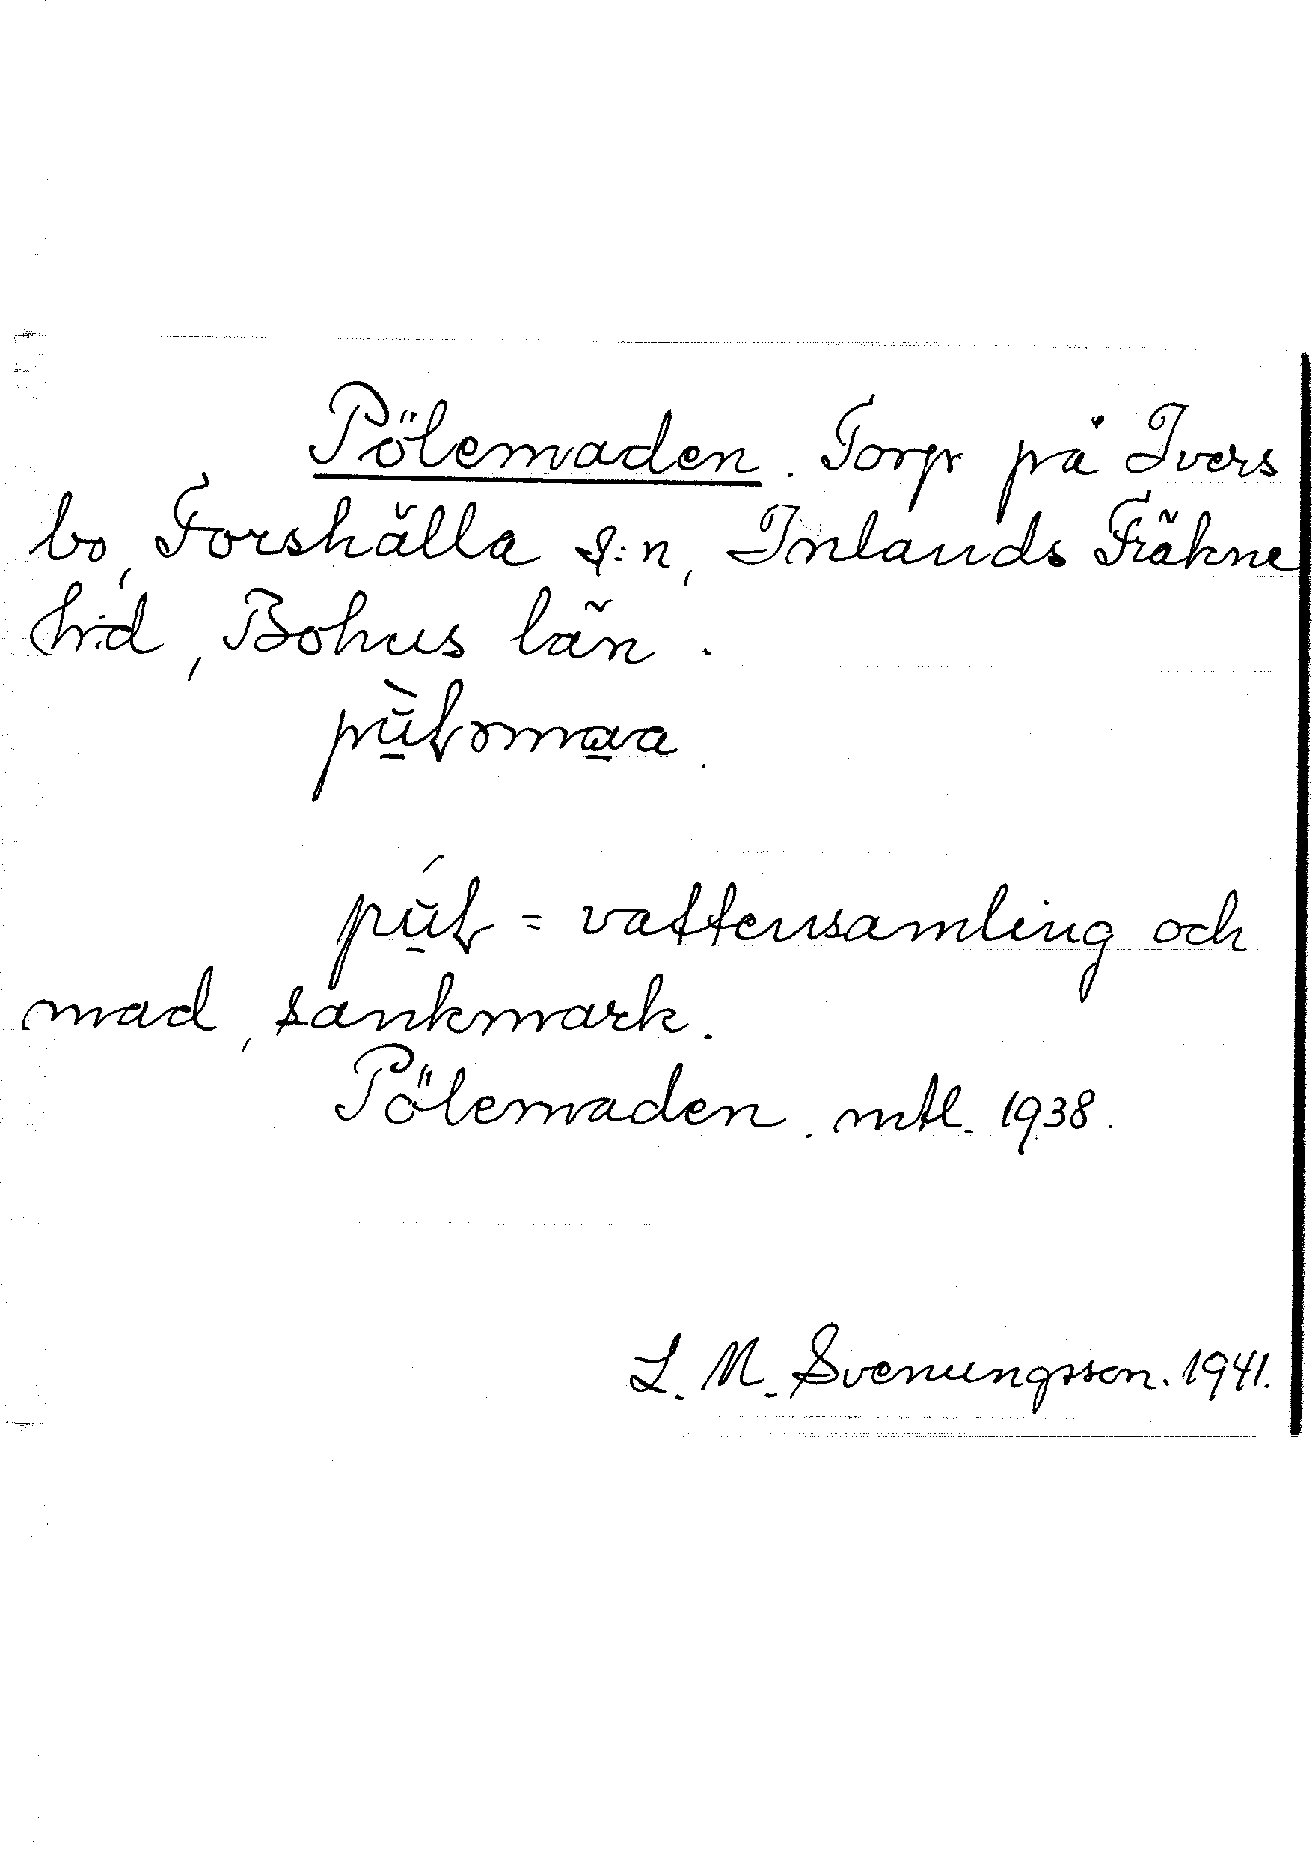 Pölemaden. Torp på Ivers
bo, Forshälla s:n, Inlands Fräkne
h:d, Bohus län.
pùłəmaa.

púł = vattensamling och
mad, sankmark.
Pölemaden. mtl. 1938.
L. M. Svenungsson. 1941.